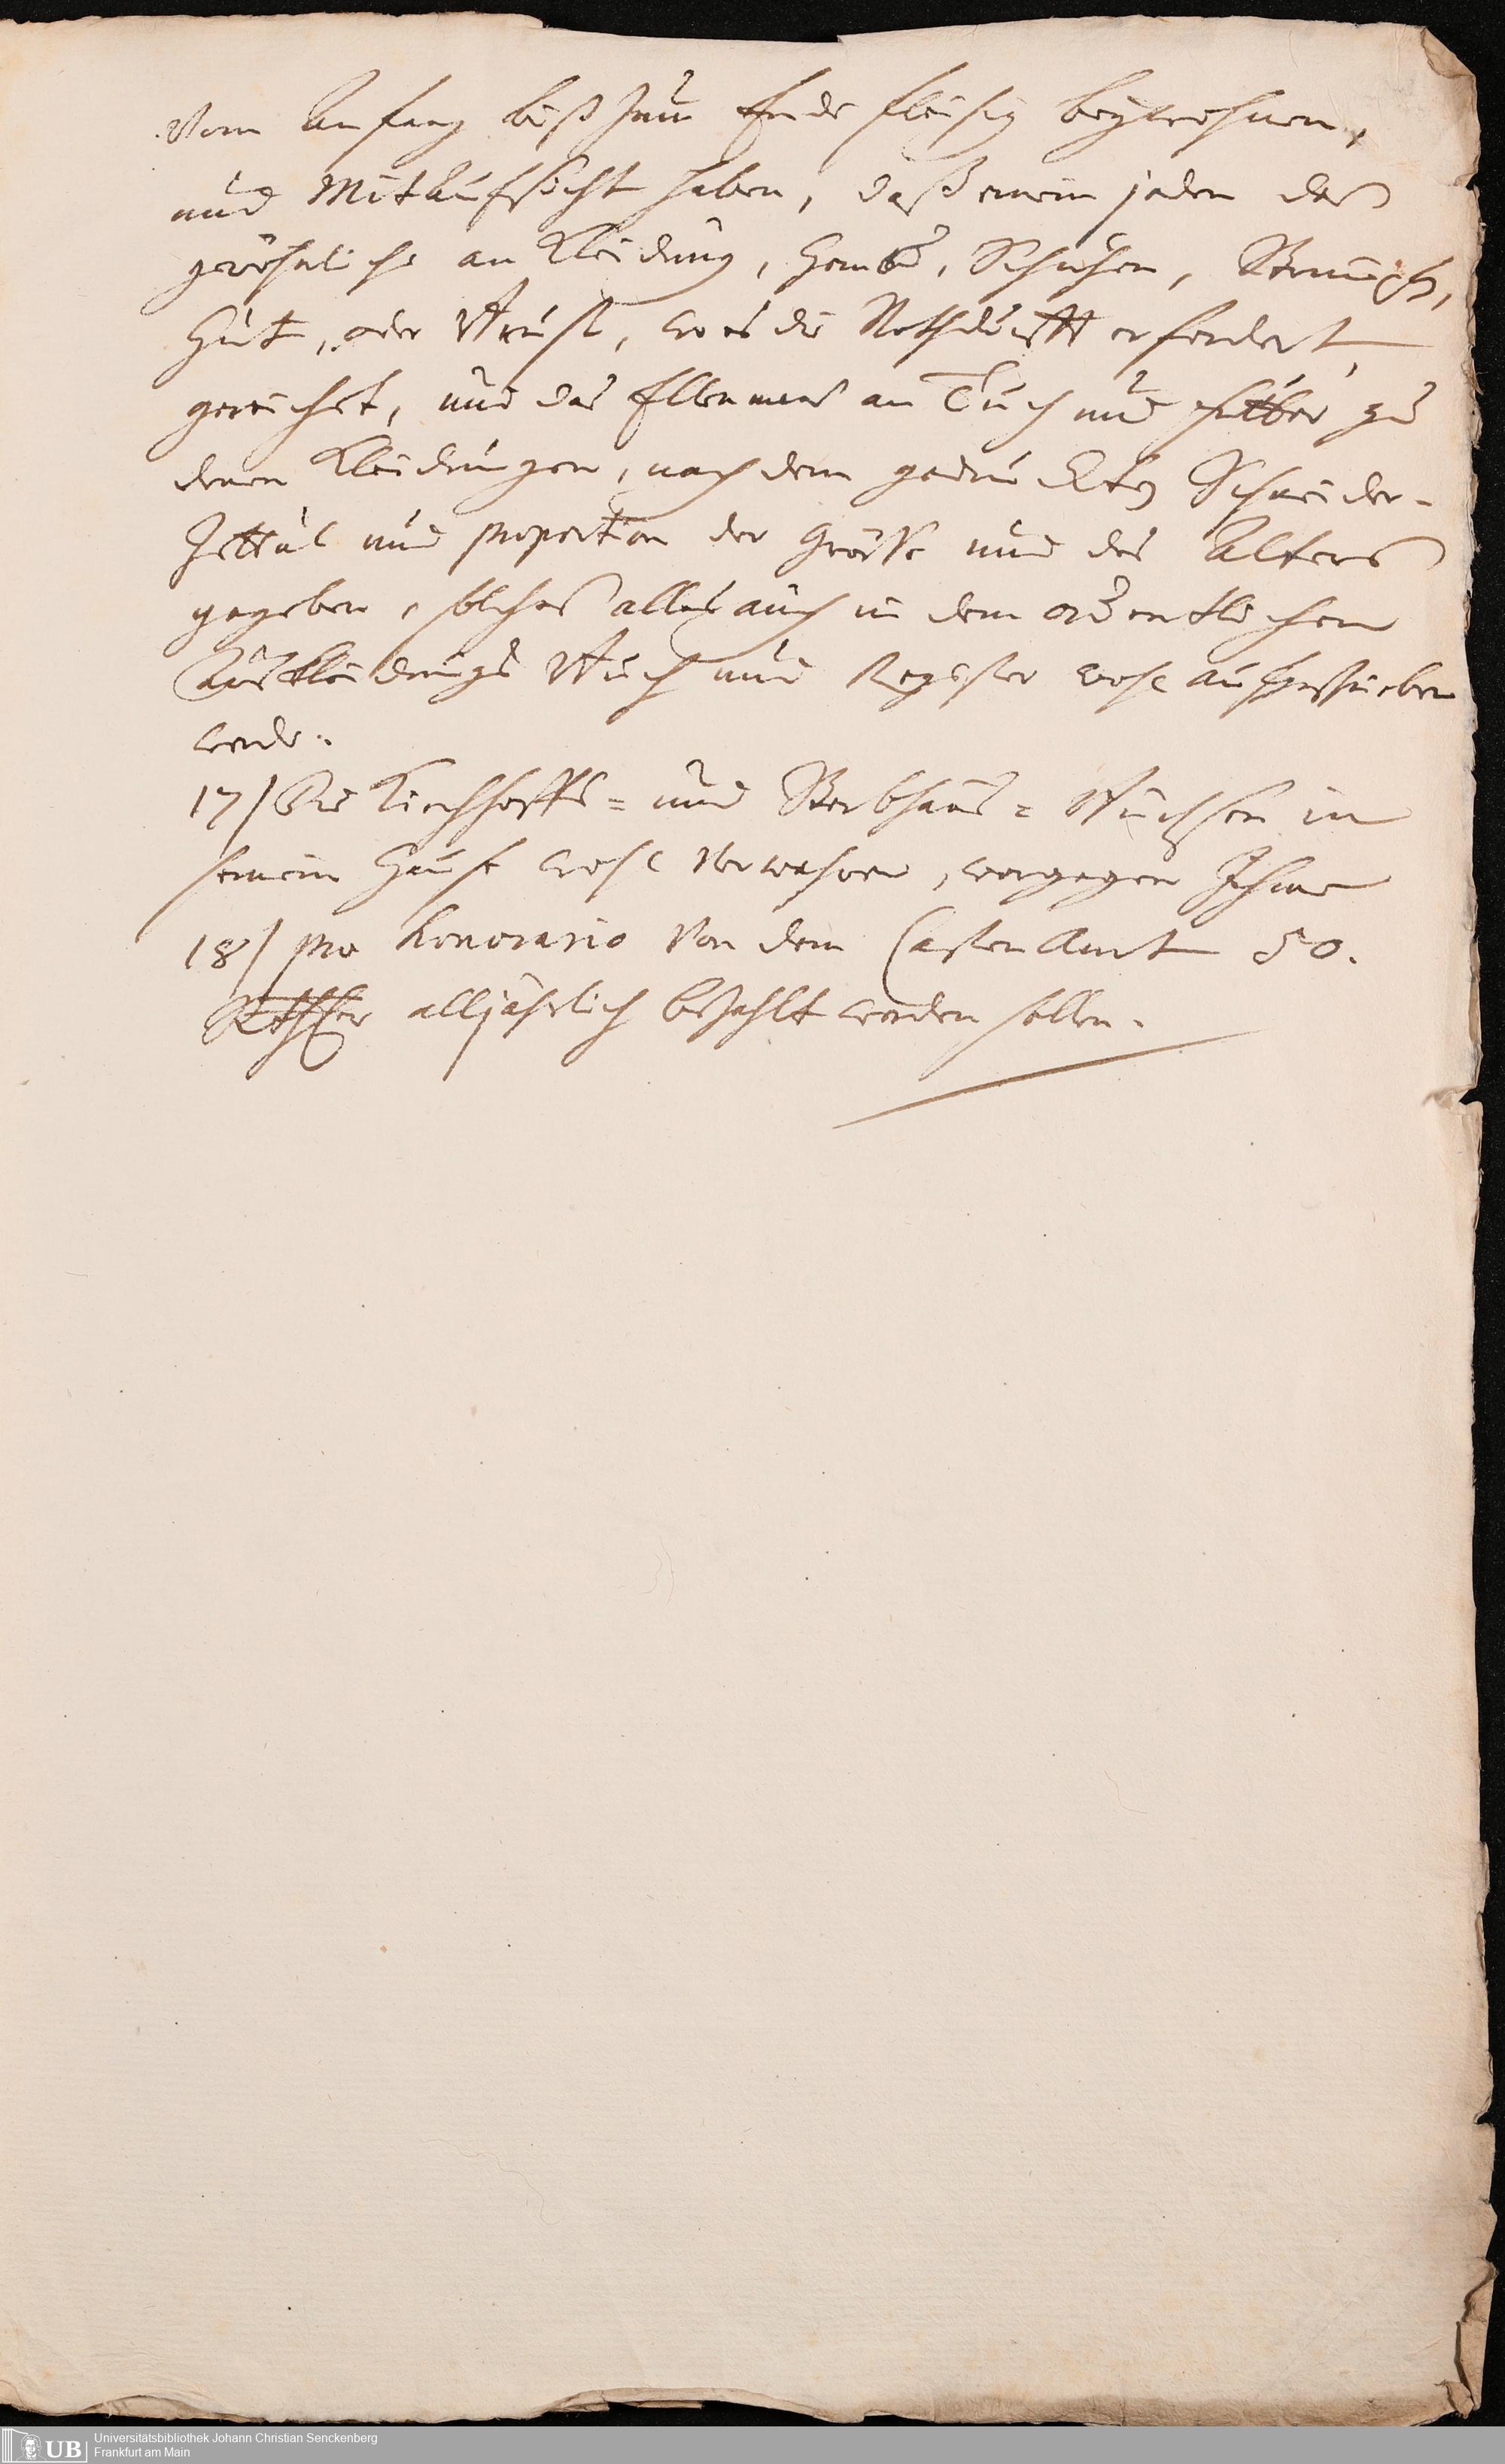 Vom Anfang biß zum Ende fleisig beywohnen,
und Mitaufsicht haben, daß einem jeden das
gewöhnliche an Kleidung, Hembd, Schuhen, Strümpff,
Hut, oder, wo es die Nothdurfft erfordert,
gereichet, und das Ellenmaas an Tuch und Futter zu
denen Kleidungen, nach dem gedruckten Schneider-
Zettul und proportion der Größe und des Alters
gegeben, solches alles auch in dem ordentlichen
Auskleidungs Buch und Register wohl aufgeschrieben
werde.
17/ Die Kirchhoffs- und Sterbhaus- Büchsen in
seinem Hause wohl verwahren, wogegen Ihme
18/ pro honorario von dem CastenAmt 50.
Rthler alljährlich bezahlt werden sollen.
UB Universitätsbibliothek Johann Christian Senckenberg
Frankfurt am Main